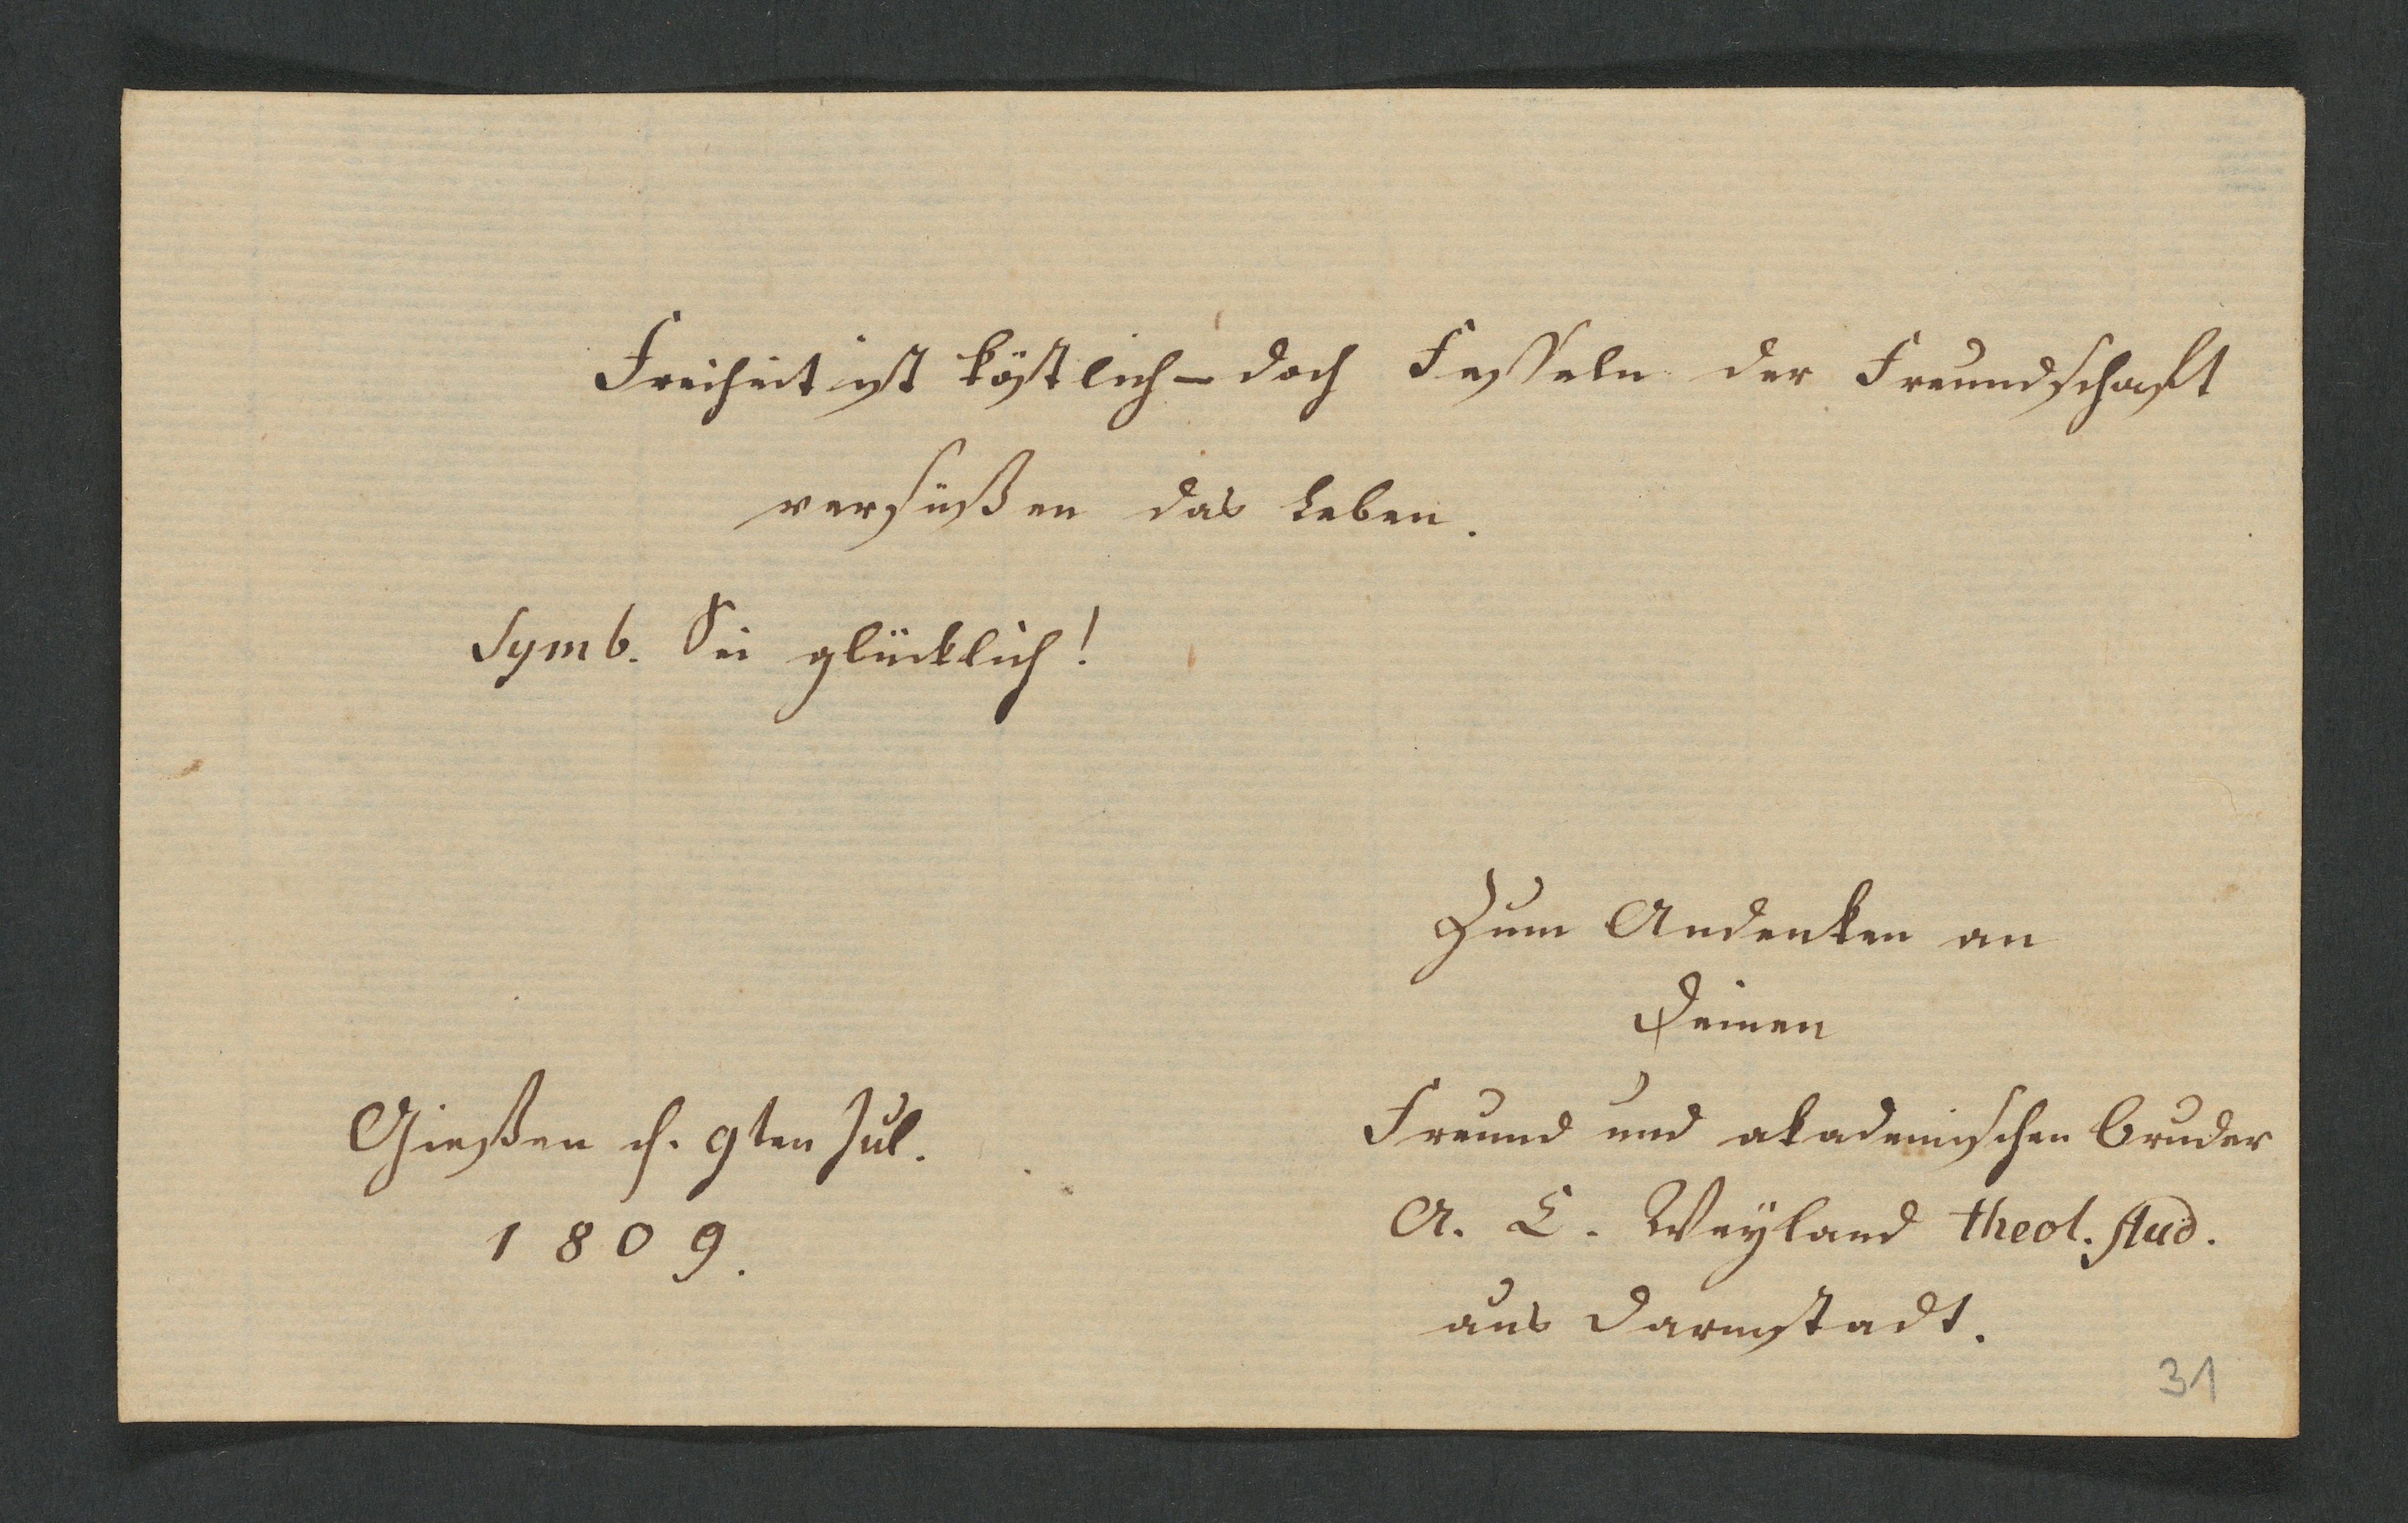 Freiheit ist köstlich – doch Fesseln der Freundschaft
versüßen das Leben.
Symb. Sei glücklich!
Zum Andenken an
Deinen
Gießen d. 9ten Jul.
1809.
Freund und akademischen Bruder
A. L. Weyland theol. stud.
aus Darmstadt.
31